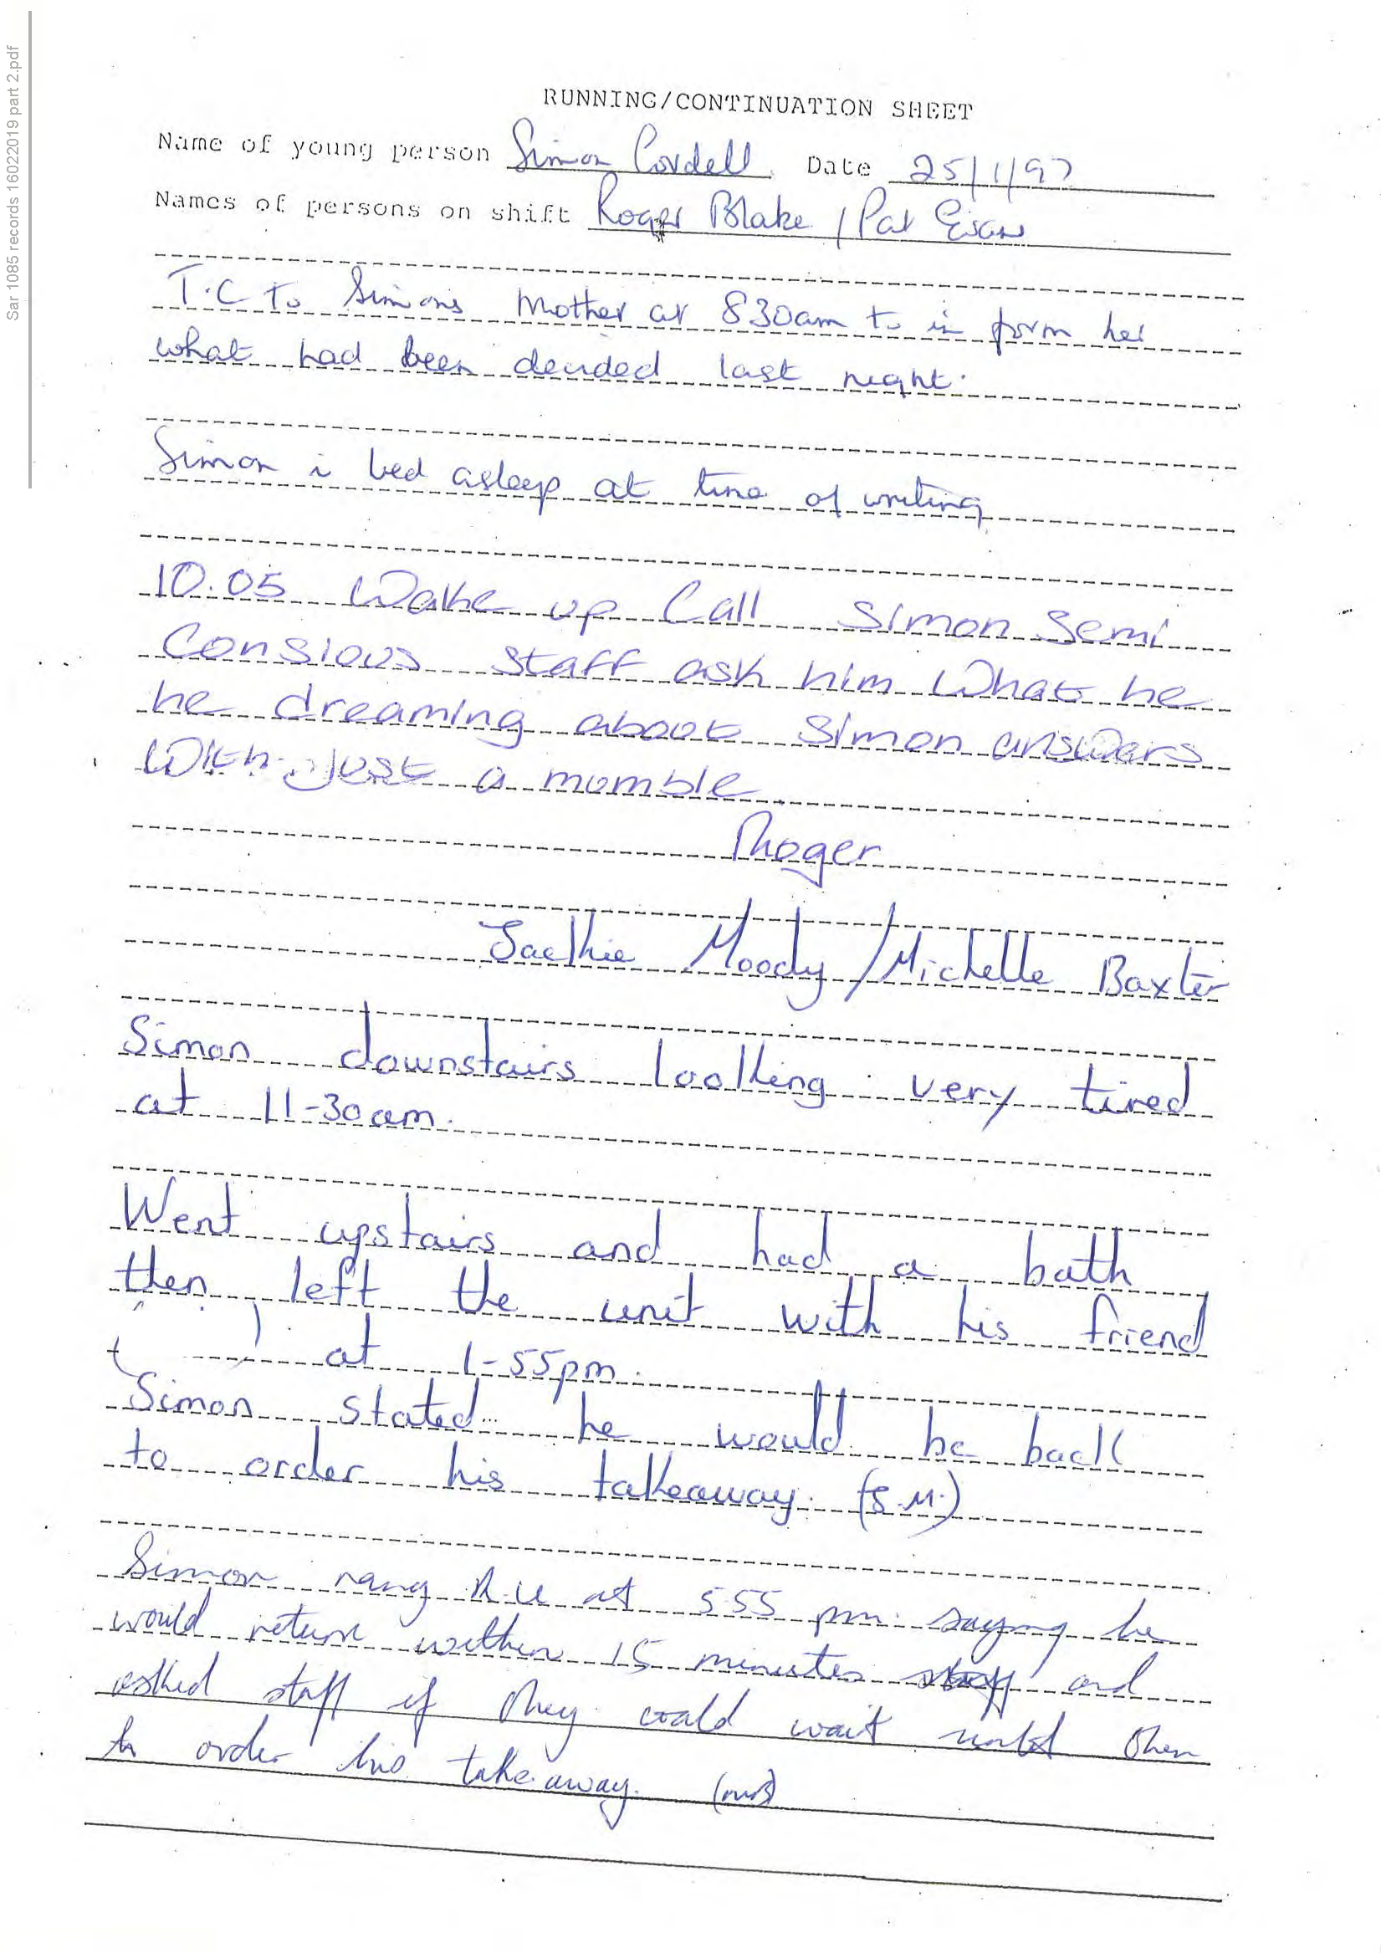 Sar 1085 records 16022019 part 2.pdf
RUNNING/CONTINUATION SHEET
Name of young person Simon Cordell Date 25/1/97
Names of persons on shift Roger Blake / Pat Evans
T.C to Simons Mother at 830am to in form her
what had been decided last night.
Simon i bed asleep at time of writing
10.05 Wake up Call Simon Semi
Consious staff ask him What he
he dreaming about Simon answers
With just a mumble
Roger
Jackie Moody / Michelle Baxter
Simon downstairs looking very tired
at 11-30am.
Went upstairs and had a bath
then left the unit with his friend
at 1-55pm.
Simon stated he would be back
to order his takeaway.
Simon rang R.U at 555 pm saying he
would return within 15 minutes and
asked staff if they could wait until then
to order his take away.